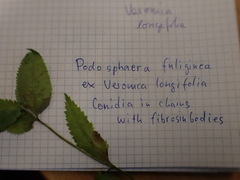 Veronica
longifolia
Podosphaera fuliginea
ex Veronica longifolia
Conidia in chains
with fibrosinbodies